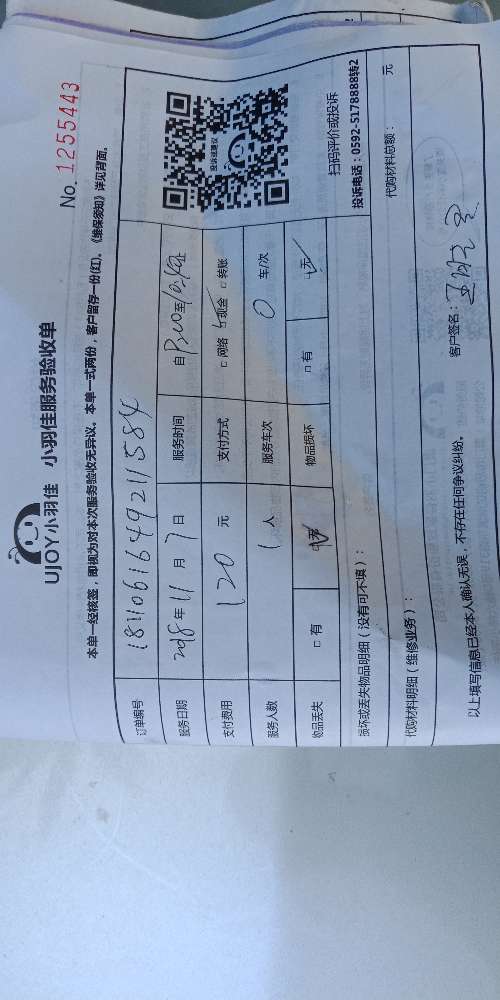 UJOY小羽佳 小羽佳服务验收单
No. 1255443
本单一经核签，即视为对本次服务验收无异议。本单一式两份，客户留存一份(红)。《维保须知》详见背面。
订单编号 181106164921 1584
服务日期 2018年 11 月 7 日 服务时间 自 至
支付费用 120 元 支付方式 □ 网络 □ 现金 □ 转账
服务人数 1 人 服务车次 0 车/次
物品丢失 □ 有 □ 无 物品损坏 □ 有 □ 无
投诉或建议
扫码评价或投诉
投诉电话：0592-5178888转2
损坏或丢失物品明细（没有可不填）：
代购材料明细（维修业务）： 代购材料总额： 元
以上填写信息已经本人确认无误，不存在任何争议纠纷。 客户签名：